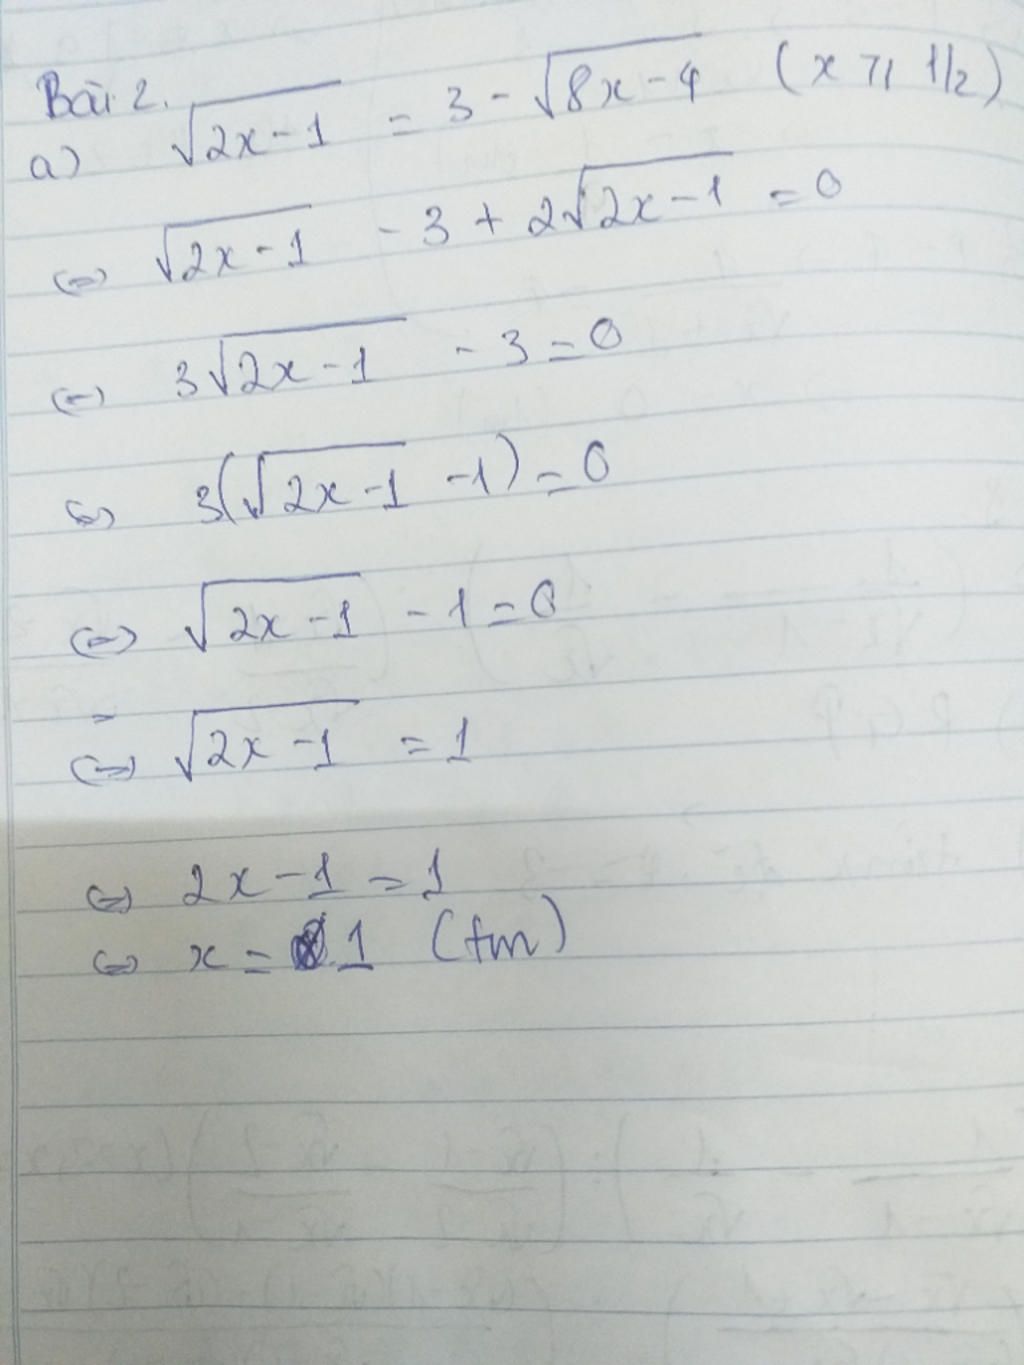 Bài 2.
a) √2x-1 = 3 - √8x-4 (x ≥ 1/2)
⇔ √2x-1 - 3 + 2√2x-1 = 0
⇔ 3√2x-1 - 3 = 0
⇔ 3(√2x-1 -1) = 0
⇔ √2x-1 - 1 = 0
=
⇔ √2x-1 = 1
⇔ 2x-1 = 1
⇔ x = 1 (tm)